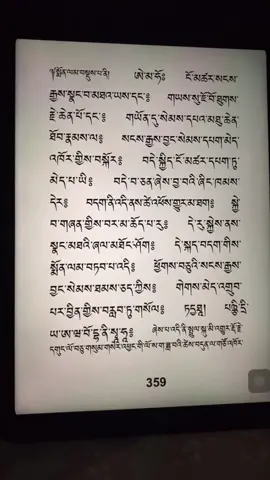 ༄༅།སྨོན་ལམ་བསྡུས་པ་ནི། ཨེ་མ་ཧོ༔ ངོ་མཚར་སངས་
རྒྱས་སྣང་བ་མཐའ་ཡས་དང་༔ གཡས་སུ་ཇོ་བོ་ཐུགས་
རྗེ་ཆེན་པོ་དང་༔ གཡོན་དུ་སེམས་དཔའ་མཐུ་ཆེན་
ཐོབ་རྣམས་ལ༔ སངས་རྒྱས་བྱང་སེམས་དཔག་མེད་
འཁོར་གྱིས་བསྐོར༔ བདེ་སྐྱིད་ངོ་མཚར་དཔག་ཏུ་
མེད་པ་ཡི༔ བདེ་བ་ཅན་ཞེས་བྱ་བའི་ཞིང་ཁམས་
དེར༔ བདག་ནི་འདི་ནས་ཚེ་འཕོས་གྱུར་མ་ཐག༔ སྐྱེ་
བ་གཞན་གྱིས་བར་མ་ཆོད་པ་རུ༔ དེ་རུ་སྐྱེས་ནས་
སྣང་མཐའི་ཞལ་མཐོང་ཤོག༔ དེ་སྐད་བདག་གིས་
སྨོན་ལམ་བཏབ་པ་འདི༔ ཕྱོགས་བཅུའི་སངས་རྒྱས་
བྱང་སེམས་ཐམས་ཅད་ཀྱིས༔ གེགས་མེད་འགྲུབ་
པར་བྱིན་གྱིས་བརླབ་ཏུ་གསོལ༔ ཏདྱཐཱ། པཉྩནྡྲི་
ཡ་ཨ་ཝ་བོ་དྷ་ནི་སྭཱ་ཧཱ༔ ཞེས་པ་འདི་ནི་སྤྲུལ་སྐུ་མི་འགྱུར་རྡོ་རྗེ་
དགུང་ལོ་བཅུ་གསུམ་
359